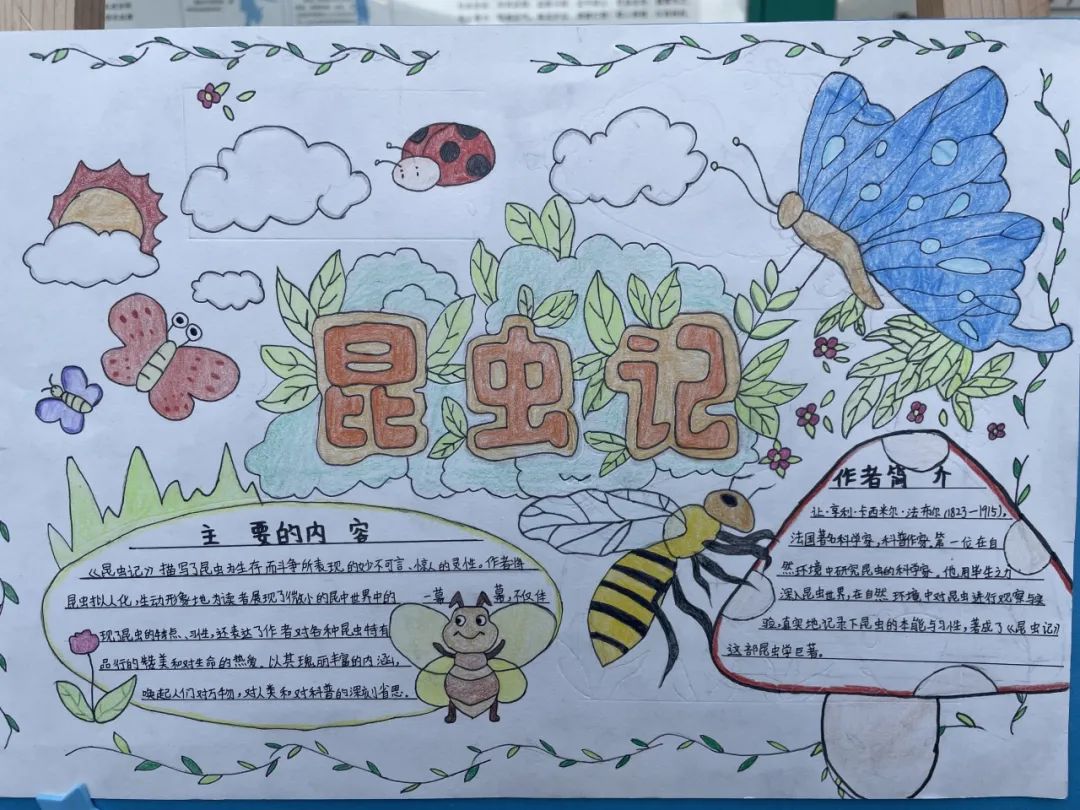 昆虫记
主要的内容
《昆虫记》描写了昆虫为生存而斗争所表现的妙不可言、惊人的灵性。作者将
昆虫拟人化,生动形象地为读者展现了微小的昆中世界中的一幕幕,不仅体
现了昆虫的特点、习性,还表达了作者对各种昆虫特有
品行的赞美和对生命的热爱。以其瑰丽丰富的内涵,
唤起人们对万物,对人类和对科普的深刻省思。
作者简介
让·亨利·卡西米尔·法布尔(1823—1915),
法国著名科学家,科普作家。第一位在自
然环境中研究昆虫的科学家。他用半生之力
深入昆虫世界,在自然环境中对昆虫进行观察与实
验,真实地记录下昆虫的本能与习性,著成了《昆虫记》
这部昆虫学巨著。